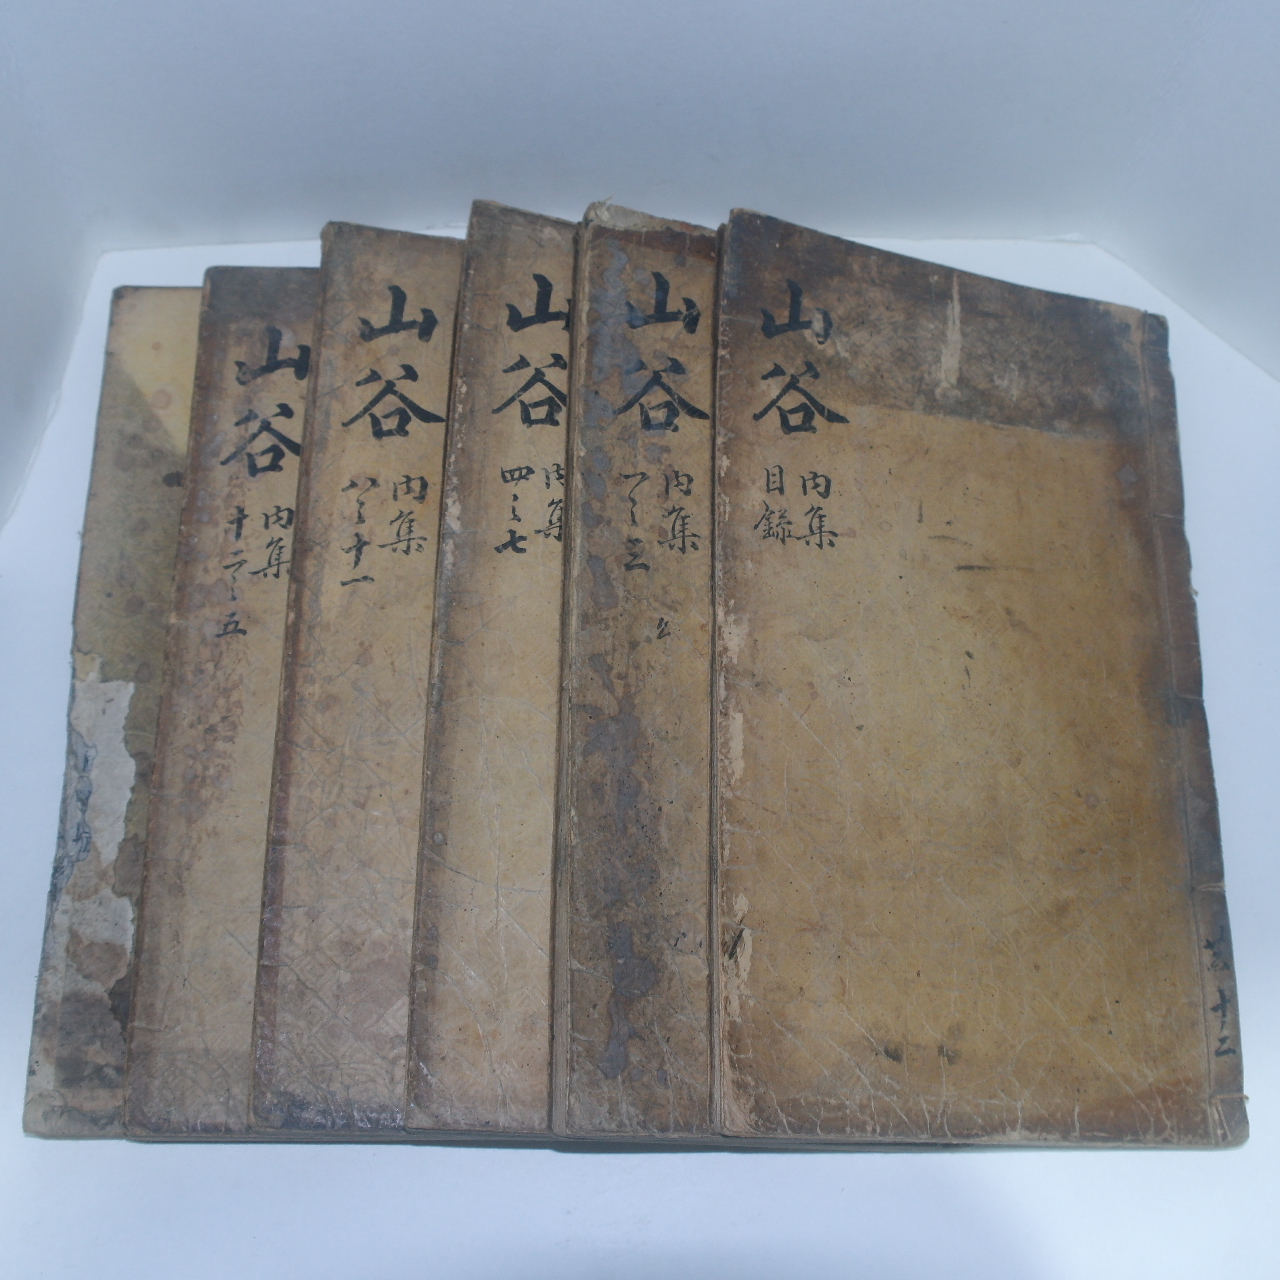 山谷
内集
目録
共十二
山谷
内集
一之三
山谷
内集
四之七
山谷
内集
八之十一
山谷
内集
十二之五